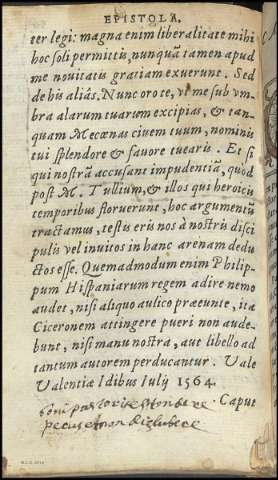 EPISTOLA.
ter legi: magna enim liberalitate mihi
hoc soli permittis, nunquā tamen apud
me novitatis gratiam exuerunt. Sed
de his aliás. Nunc oro te, vt me sub vm-
bra alarum tuarum excipias, & tan-
quam Mecœnas ciuem tuum, nominis
tui splendore & fauore tuearis. Et si
qui nostrā accusant impudentiā, quod
post M. Tullium, & illos qui heroicis
temporibus floruerunt, hoc argumentū
tractamus, testis eris nos à nostris disci
pulis vel inuitos in hanc arenam dedu
ctos esse. Quemadmodum enim Philip-
pum Hispaniarum regem adire nemo
audet, nisi aliquo præeunte, ita
Ciceronem attingere pueri non aude-
bunt, nisi manu nostra, aut libello ad
tantum autorem perducantur. Vale
Valentiæ Idibus Iulij 1564.
Caput
boni pastoris est tondere
pecus